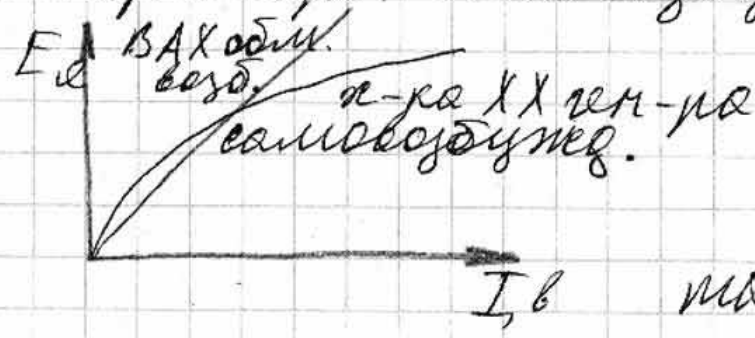 E я
ВАХ обм.
возб.
х-ка ХХ ген-ра
самовозбужд.
I, в